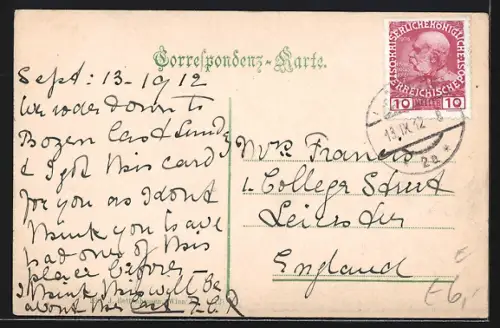 Correspondenz-Karte.
KAISERLICHE KÖNIGLICHE
ÖSTERREICHISCHE
10 10
13.IX.12 8
2a *
Sept: 13-1912
We rode down to
Bozen last Sunday
& I got this card
for you as I dont
think you have
had one of this
place before -
I think this will be
about the last F.C.R
Mrs Francis
1. College Street
Leicester
England
E6,-